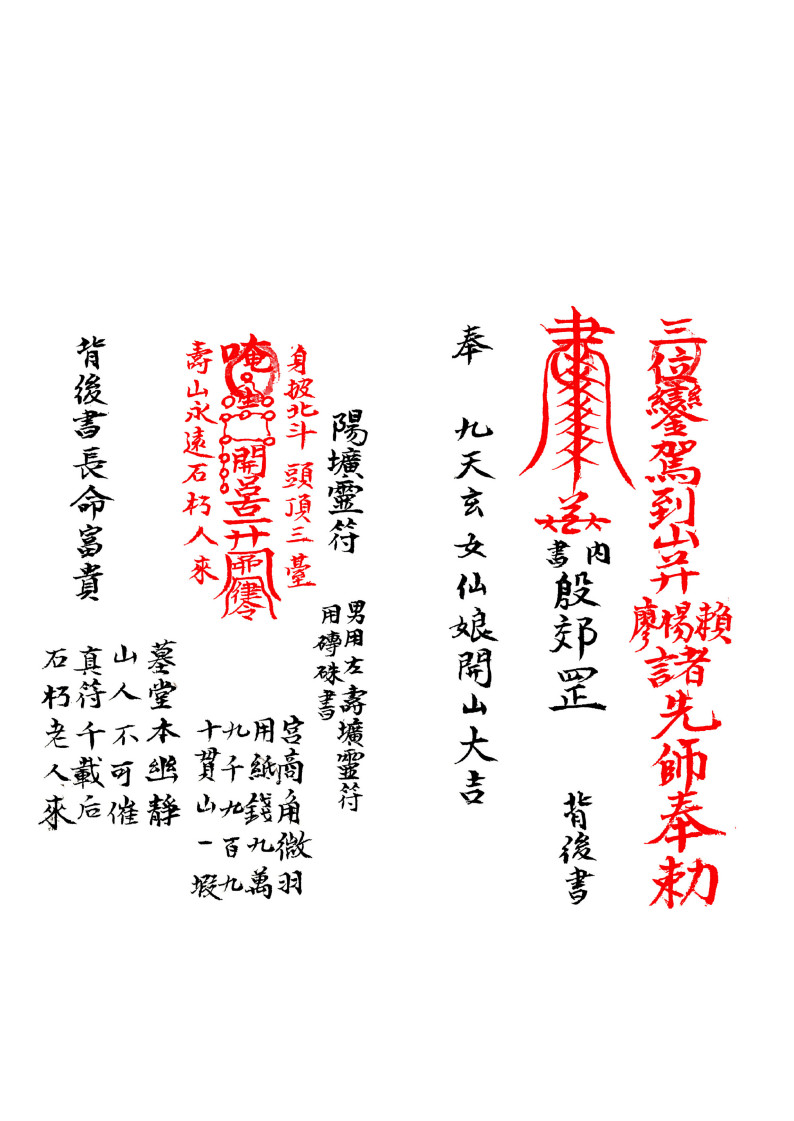 三位鑾駕到山井
賴楊廖
諸先師奉勅
內書
殷郊罡
背後書
奉 九天玄女仙娘開山大吉
陽壙靈符
男用左壽壙靈符
用磚硃書
身披北斗 頭頂三臺
唵
開
壽山永遠石朽人來
宮商角微羽
用紙錢九萬
九千九百九
十貫山一塅
背後書長命富貴
墓堂本幽靜
山人不可催
真符千載后
石朽老人來